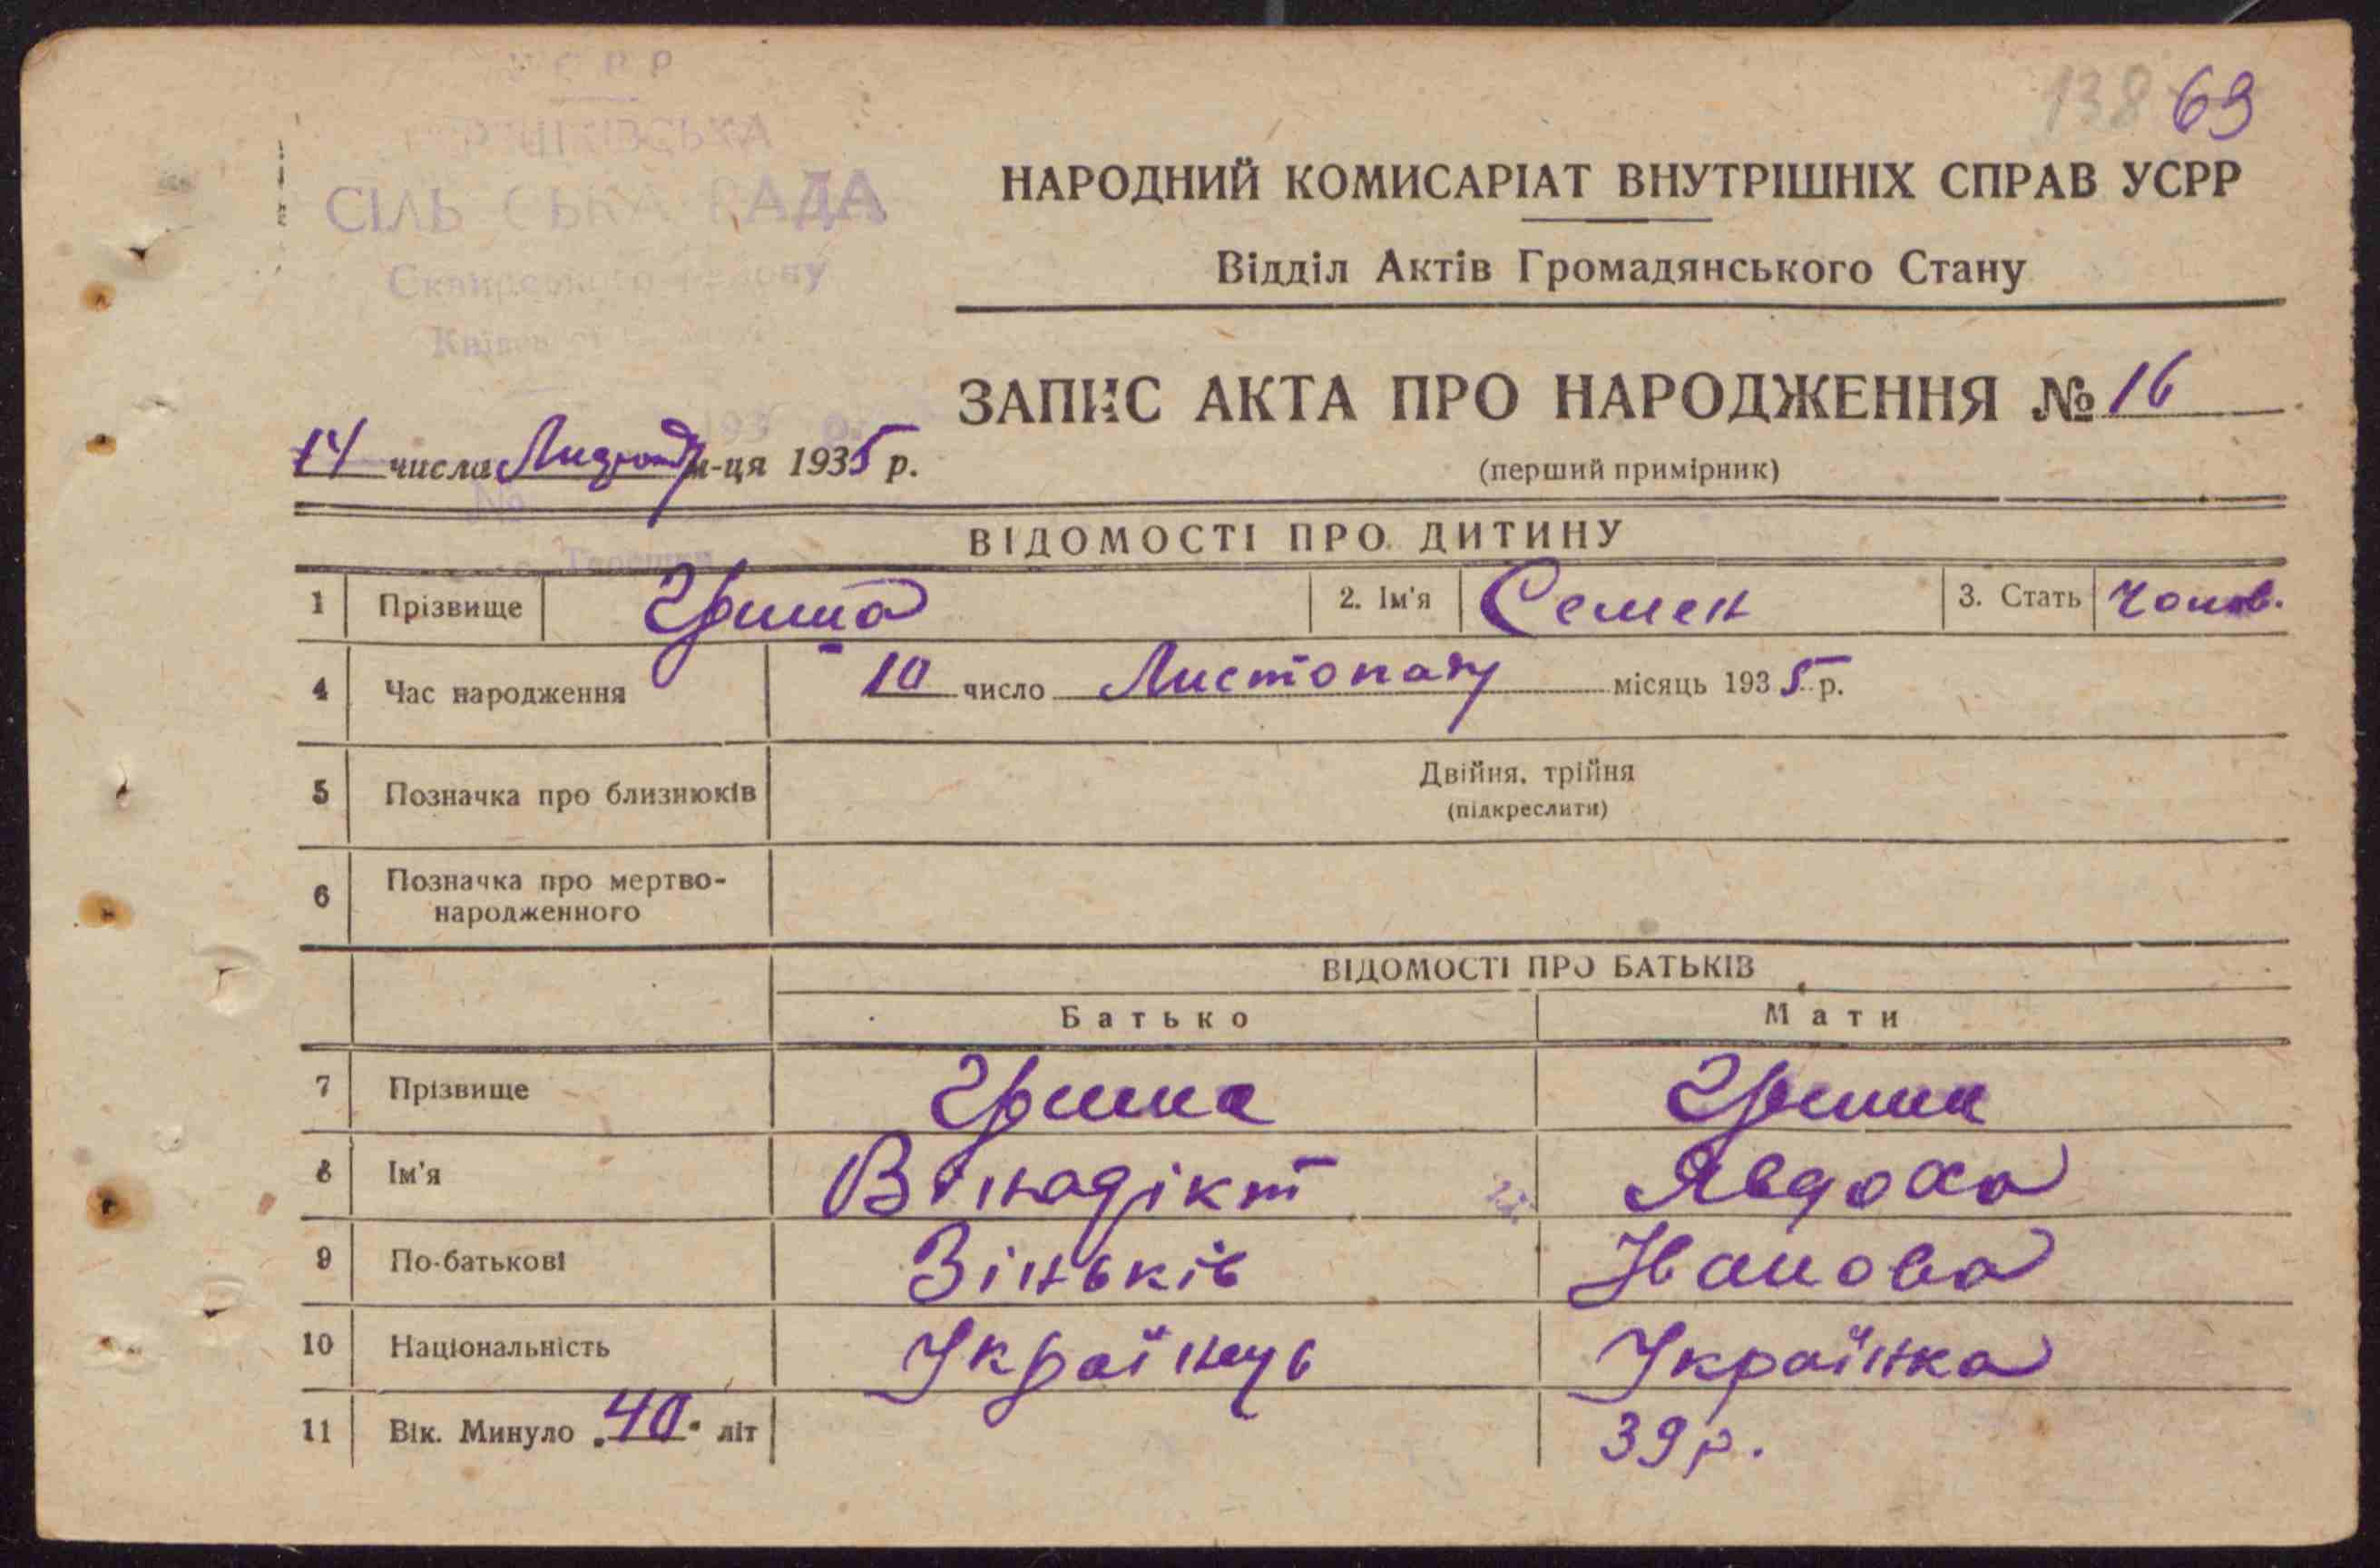 УСРР
138 69
СІЛЬСЬКА РАДА
НАРОДНИЙ КОМИСАРІАТ ВНУТРІШНІХ СПРАВ УСРР
Відділ Актів Громадянського Стану
ЗАПИС АКТА ПРО НАРОДЖЕННЯ № 16
14 числа м-ця 1935 р.
(перший примірник)
№
ВІДОМОСТІ ПРО ДИТИНУ
1 Прізвище Гриша 2. Ім'я Семен 3. Стать Чолов.
4 Час народження 10 число Листопаду місяць 1935 р.
5 Позначка про близнюків Двійня, трійня
(підкреслити)
6 Позначка про мертво-
народженного
ВІДОМОСТІ ПРО БАТЬКІВ
Батько Мати
7 Прізвище Гриша Гриша
8 Ім'я Явдоха
9 По-батькові Зіньків Іванова
10 Національність Українець Українка
11 Вік. Минуло 40 літ 39 р.